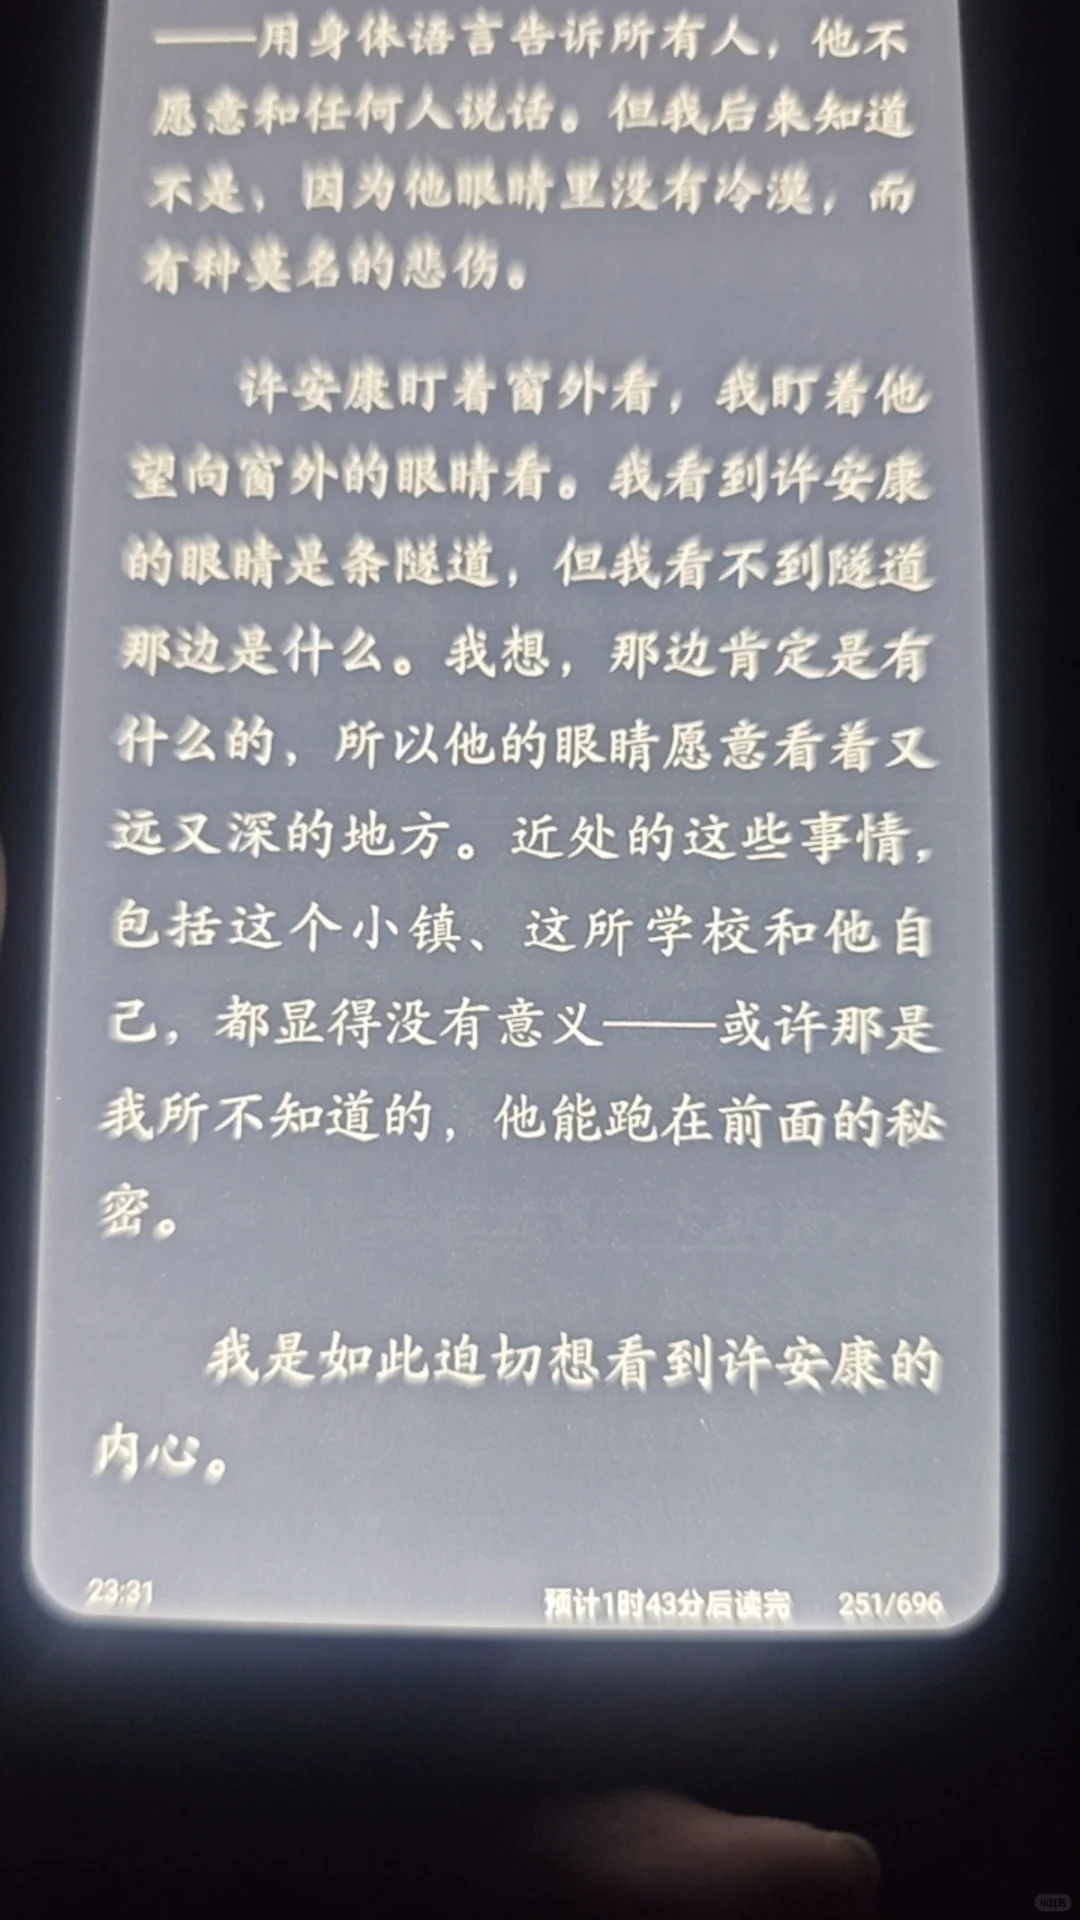 ——用身体语言告诉所有人，他不
愿意和任何人说话。但我后来知道
不是，因为他眼睛里没有冷漠，而
有种莫名的悲伤。
许安康盯着窗外看，我盯着他
望向窗外的眼睛看。我看到许安康
的眼睛是条隧道，但我看不到隧道
那边是什么。我想，那边肯定是有
什么的，所以他的眼睛愿意看着又
远又深的地方。近处的这些事情，
包括这个小镇、这所学校和他自
己，都显得没有意义——或许那是
我所不知道的，他能跑在前面的秘
密。
我是如此迫切想看到许安康的
内心。
23:31 预计1时43分后读完 251/696
小红书